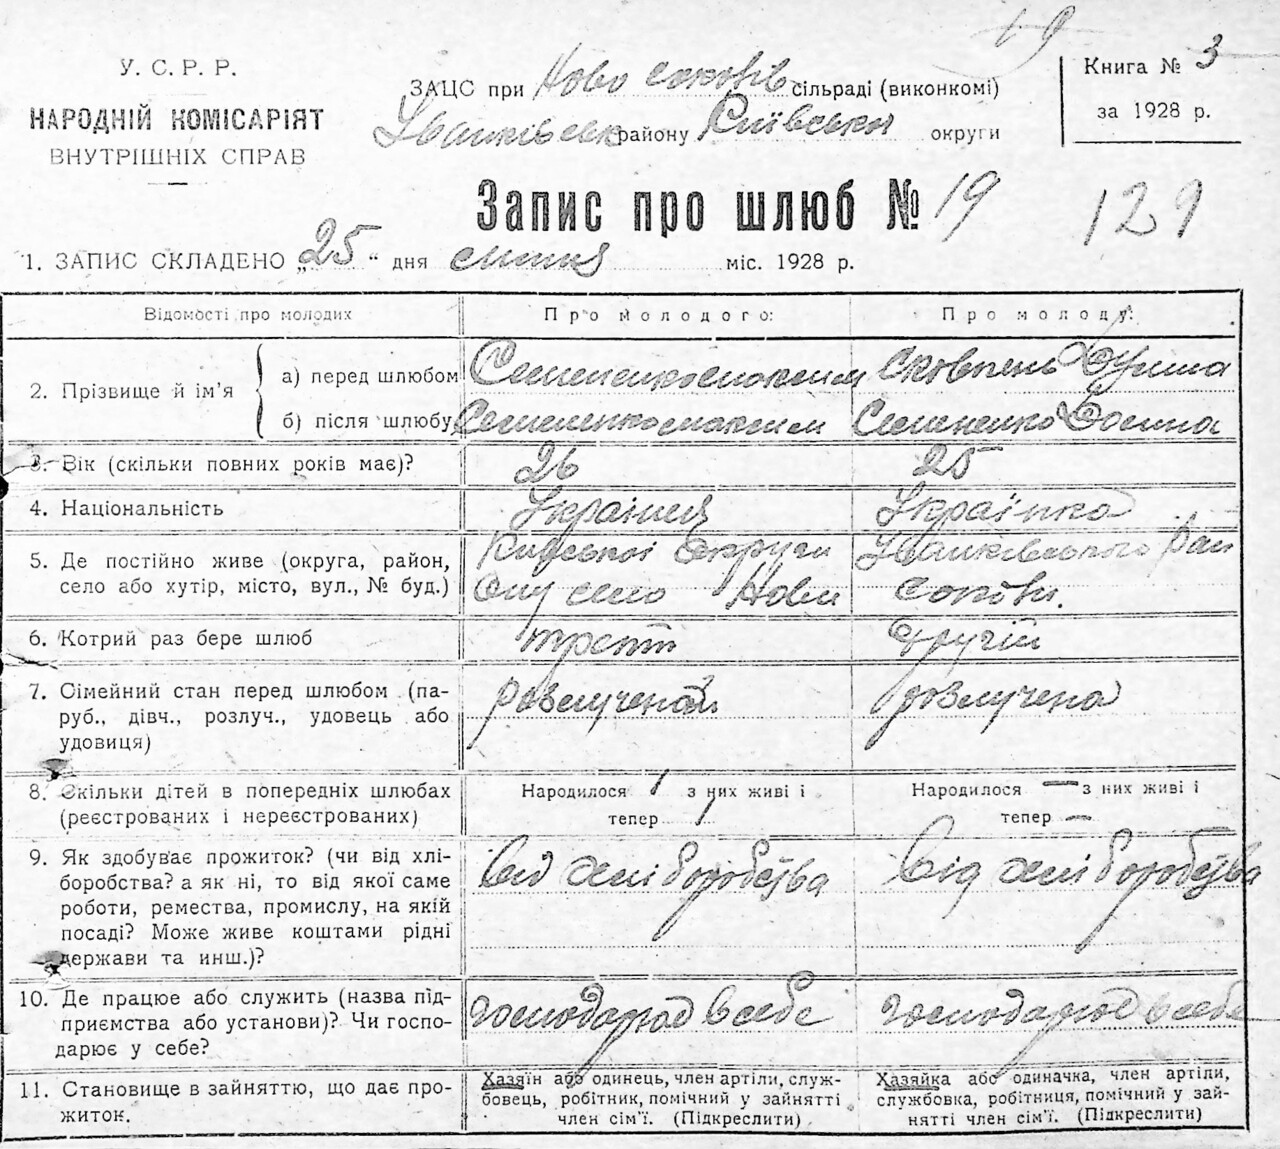 19
У. С. Р. Р.
НАРОДНІЙ КОМІСАРІЯТ
ВНУТРІШНІХ СПРАВ
ЗАЦС при Ново соколів сільраді (виконкомі)
Іванківськ району Київськи округи
Книга № 3
за 1928 р.
Запис про шлюб № 19
129
1. ЗАПИС СКЛАДЕНО „25“ дня липня міс. 1928 р.
Відомості про молодих
Про молодого:
Про молоду:
2. Прізвище й ім'я
а) перед шлюбом
Семененко максим
Сковпень
б) після шлюбу
Семененко максим
Семененко
3. Вік (скільки повних років має)?
26
25
4. Національність
Українця
Українка
5. Де постійно живе (округа, район,
село або хутір, місто, вул., № буд.)
Київської округи
Іванківського рай
ону село Нови
соколи.
6. Котрий раз бере шлюб
третт
другій
7. Сімейний стан перед шлюбом (па-
руб., дівч., розлуч., удовець або
удовиця)
розлученой
розлучена
8. Скільки дітей в попередніх шлюбах
(реєстрованих і нереєстрованих)
Народилося 1 з них живі і
тепер 1
Народилося — з них живі і
тепер —
9. Як здобуває прожиток? (чи від хлі-
боробства? а як ні, то від якої саме
роботи, ремества, промислу, на якій
посаді? Може живе коштами рідні
держави та инш.)?
Від хліборобства
Від хліборобства
10. Де працює або служить (назва під-
приємства або установи)? Чи госпо-
дарює у себе?
господарює в себе
господарює в себе
11. Становище в зайняттю, що дає про-
житок.
Хазяїн або одинець, член артіли, служ-
бовець, робітник, помічний у зайнятті
член сім'ї. (Підкреслити)
Хазяйка або одиначка, член артіли,
службовка, робітниця, помічний у зай-
нятті член сім'ї. (Підкреслити)